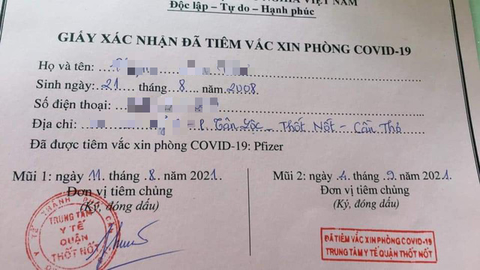 NGHĨA VIỆT NAM
Độc lập – Tự do – Hạnh phúc
GIẤY XÁC NHẬN ĐÃ TIÊM VẮC XIN PHÒNG COVID-19
Họ và tên:
Sinh ngày: 21 tháng 8 năm 2008
Số điện thoại:
Địa chỉ: P. Tân Lộc - Thốt Nốt - Cần Thơ
Đã được tiêm vắc xin phòng COVID-19: Pfizer
Mũi 1: ngày 11. tháng. 8. năm 2021. Mũi 2: ngày 4. tháng 9. năm 2021.
Đơn vị tiêm chủng Đơn vị tiêm chủng
(Ký, đóng dấu) (Ký, đóng dấu)
TRUNG TÂM
Y TẾ
QUẬN
THỐT NỐT
ĐÃ TIÊM VẮC XIN PHÒNG COVID-19
TRUNG TÂM Y TẾ QUẬN THỐT NỐT